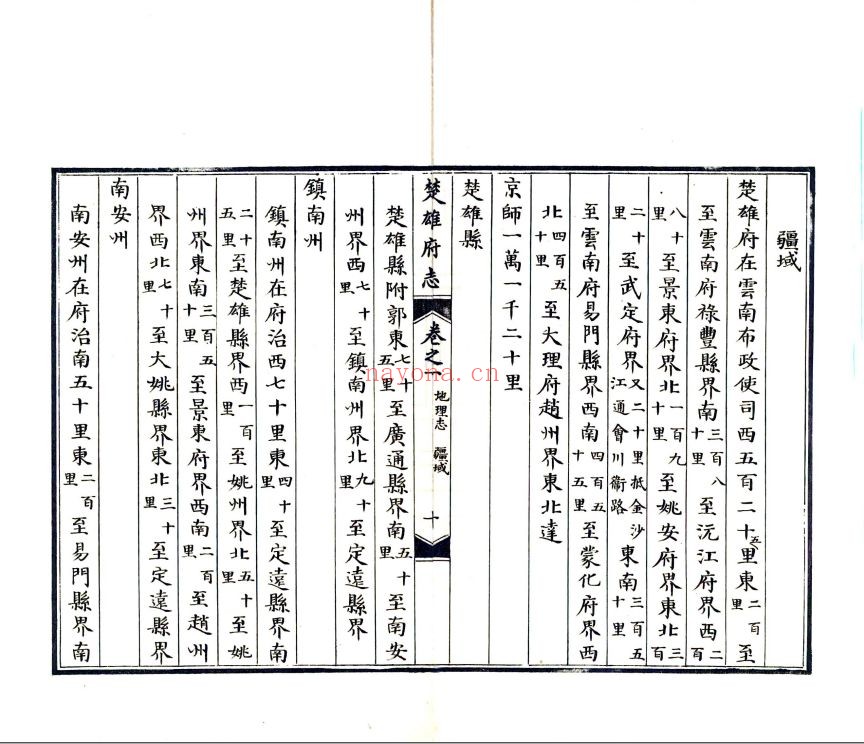 疆域
楚雄府在雲南布政使司西五百二十五里東二百里至
至雲南府祿豐縣界南三百八十里至沅江府界西二百
八十里至景東府界北一百九十里至姚安府界東北三百
二十里至武定府界又二十里抵金沙江通會川衞路東南三百五十里
至雲南府易門縣界西南四百五十五里至蒙化府界西
北四百五十里至大理府趙州界東北達
京師一萬一千二十里
楚雄縣
楚雄府志 卷之一 地理志 疆域 十
楚雄縣附郭東七十五里至廣通縣界南五十里至南安
州界西七十里至鎮南州界北九十里至定遠縣界
鎮南州
鎮南州在府治西七十里東四十里至定遠縣界南
二十五里至楚雄縣界西一百里至姚州界北五十里至姚
州界東南三百五十里至景東府界西南二百里至趙州
界西北七十里至大姚縣界東北三十里至定遠縣界
南安州
南安州在府治南五十里東二百里至易門縣界南
nayona.cn